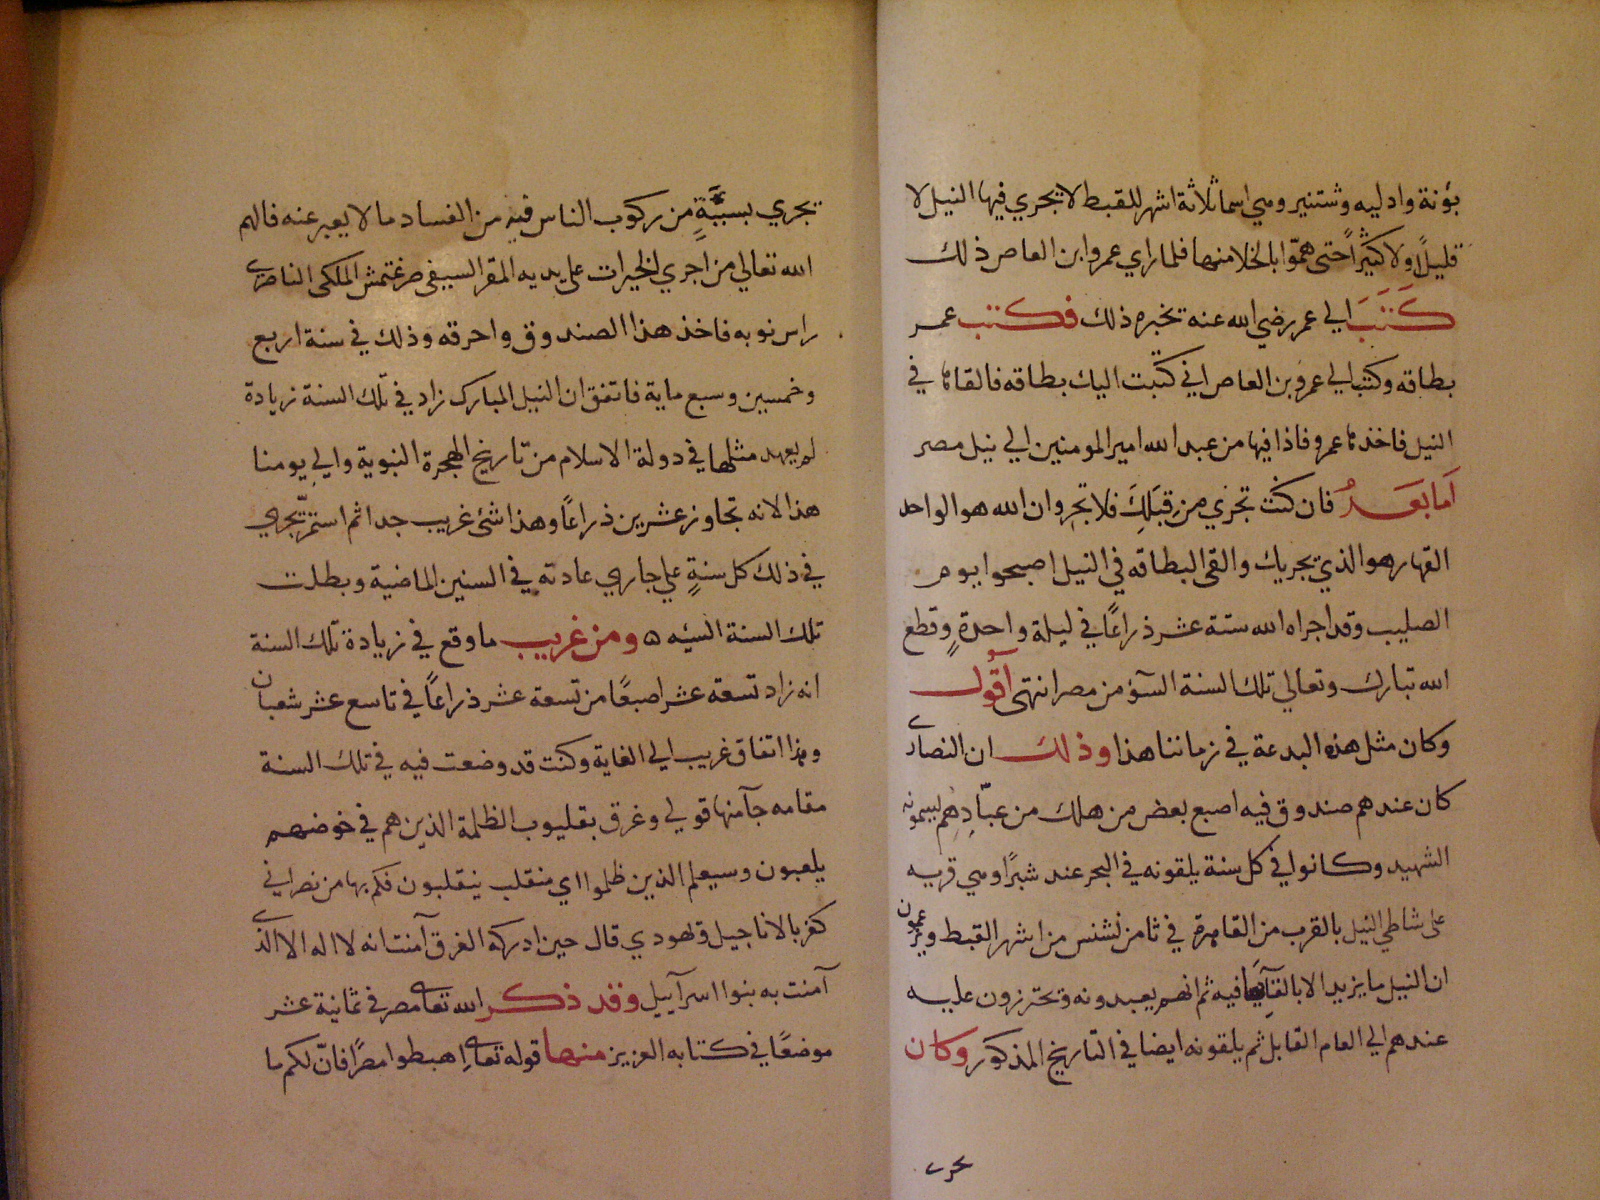 بؤنة وادليه وشتنير وهي اسما ثلاثة اشهر للقبط لا يجري فيها النيل لا
قليلاً ولا كثيراً حتى همّوا بالخلا منها فلما راي عمرو ابن العاص ذلك
كَتَبَ الي عمر رضي الله عنه تخبره ذلك فكتب عمر
بطاقه وكتب الي عمرو بن العاص اني كتبت اليك بطاقه فالقاها في
النيل فاخذها عمرو فاذا فيها من عبد الله امير المومنين الي نيل مصر
اَما بَعَدُ فان كنت تجري من قِبَلِكَ فلا تجر وان الله هو الواحد
القهار هو الذي يجريك والقى البطاقه في النيل اصبحوا يوم
الصليب وقد اجراه الله ستة عشر ذراعًا في ليلة واحدةٍ وقطع
الله تبارك وتعالي تلك السنة السّؤ من مصر انتهى اَقُول
وكان مثل هذه البدعة في زماننا هذا وذلك ان النصارى
كان عندهم صندوق فيه اصبع بعض من هلك من عبّادِهم ليسمونه
الشهيد وكانوا في كل سنة يلقونه في البحر عند شبرًا وهي قريه
على شاطي النيل بالقرب من القاهرة في ثامن بشنس من اشهر القبط ويزعمون
ان النيل ما يزيد الا بالقآئها فيه ثم انهم يعبدونه ويحترزون عليه
عندهم الي العام القابل ثم يلقونه ايضا في التاريخ المذكور وكان
يجري
يجري بسببةٍ من ركوب الناس فيه من الفساد ما لا يعبر عنه فالهم
الله تعالي من اجري الخيرات على يديه المقر السيفى صرغتمش الملكى الناصري
راس نوبه فاخذ هذا الصندوق واحرقه وذلك في سنة اربع
وخمسين وسبع ماية فاتفق ان النيل المبارك زاد في تلك السنة زيادة
لم يعهد مثلها في دولة الاسلام من تاريخ الهجرة النبوية والي يومنا
هذا لانه تجاوز عشرين ذراعًا وهذا شئ غريب جدا ثم استمرّ يجري
في ذلك كل سنةٍ علي جاري عادته في السنين الماضية وبطلت
تلك السنة السئه ه ومن غريب ما وقع في زيادة تلك السنة
انه زاد تسعة عشر اصبعًا من تسعة عشر ذراعًا في تاسع عشر شعبان
وهذا اتفاق غريب الي الغاية وكنت قد وضعت فيه في تلك السنة
مقامه جآ منها قولي وغرق بقليوب الظلمة الذين هم في خوضهم
يلعبون وسيعلم الذين ظلموا اي منقلب ينقلبون فكم بها من نصراني
كفر بالاناجيل ويهودي قال حين ادركه الغرق آمنت انه لا اله الا الذي
آمنت به بنوا اسرآييل وقد ذكر الله تعالى مصر في ثمانية عشر
موضعًا في كتابه العزيز منها قوله تعالى اهبطوا مصرًا فانّ لكم ما